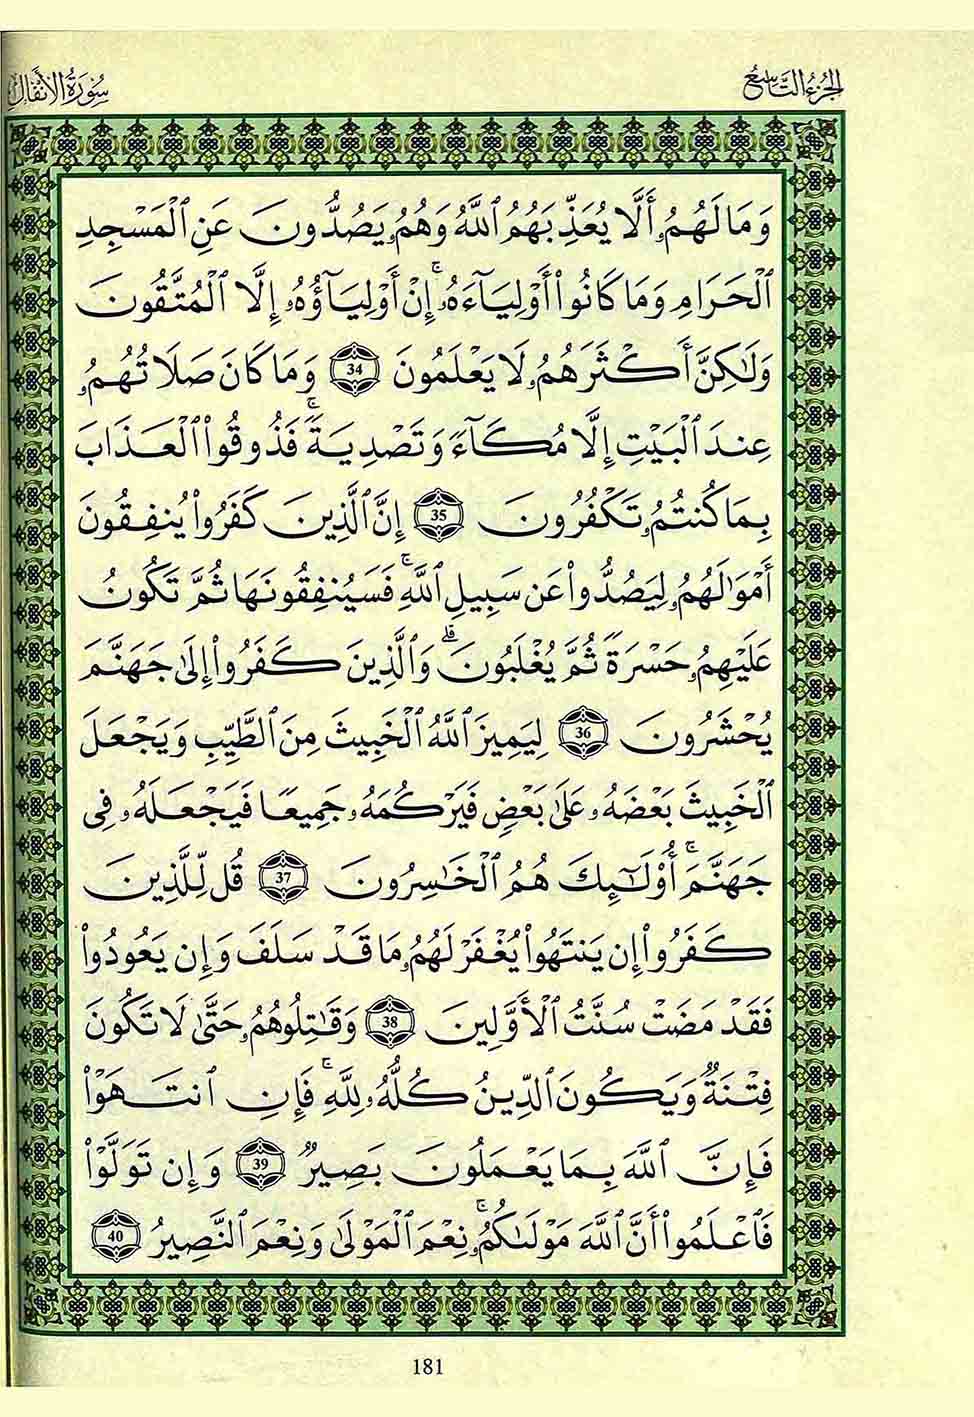 الجزء التاسع
سورة الأنفال
وَمَا لَهُمُۥٓ أَلَّا يُعَذِّبَهُمُ ٱللَّهُ وَهُمُۥ يَصُدُّونَ عَنِ ٱلْمَسْجِدِ
ٱلْحَرَامِ وَمَا كَانُوٓا۟ أَوْلِيَآءَهُۥٓۚ إِنْ أَوْلِيَآؤُهُۥٓ إِلَّا ٱلْمُتَّقُونَ
وَلَٰكِنَّ أَكْثَرَهُمُۥ لَا يَعْلَمُونَ 34 وَمَا كَانَ صَلَاتُهُمُۥ
عِندَ ٱلْبَيْتِ إِلَّا مُكَآءً وَتَصْدِيَةًۚ فَذُوقُوا۟ ٱلْعَذَابَ
بِمَا كُنتُمُۥ تَكْفُرُونَ 35 إِنَّ ٱلَّذِينَ كَفَرُوا۟ يُنفِقُونَ
أَمْوَٰلَهُمُۥ لِيَصُدُّوا۟ عَن سَبِيلِ ٱللَّهِۚ فَسَيُنفِقُونَهَا ثُمَّ تَكُونُ
عَلَيْهِمُۥ حَسْرَةً ثُمَّ يُغْلَبُونَۗ وَٱلَّذِينَ كَفَرُوٓا۟ إِلَىٰ جَهَنَّمَ
يُحْشَرُونَ 36 لِيَمِيزَ ٱللَّهُ ٱلْخَبِيثَ مِنَ ٱلطَّيِّبِ وَيَجْعَلَ
ٱلْخَبِيثَ بَعْضَهُۥ عَلَىٰ بَعْضٍ فَيَرْكُمَهُۥ جَمِيعًا فَيَجْعَلَهُۥ فِى
جَهَنَّمَۚ أُو۟لَٰٓئِكَ هُمُ ٱلْخَٰسِرُونَ 37 قُل لِّلَّذِينَ
كَفَرُوٓا۟ إِن يَنتَهُوا۟ يُغْفَرْ لَهُمُۥ مَا قَدْ سَلَفَ وَإِن يَعُودُوا۟
فَقَدْ مَضَتْ سُنَّتُ ٱلْأَوَّلِينَ 38 وَقَٰتِلُوهُمُۥ حَتَّىٰ لَا تَكُونَ
فِتْنَةٌ وَيَكُونَ ٱلدِّينُ كُلُّهُۥ لِلَّهِۚ فَإِنِ ٱنتَهَوْا۟
فَإِنَّ ٱللَّهَ بِمَا يَعْمَلُونَ بَصِيرٌ 39 وَإِن تَوَلَّوْا۟
فَٱعْلَمُوٓا۟ أَنَّ ٱللَّهَ مَوْلَىٰكُمُۥۚ نِعْمَ ٱلْمَوْلَىٰ وَنِعْمَ ٱلنَّصِيرُ 40
181